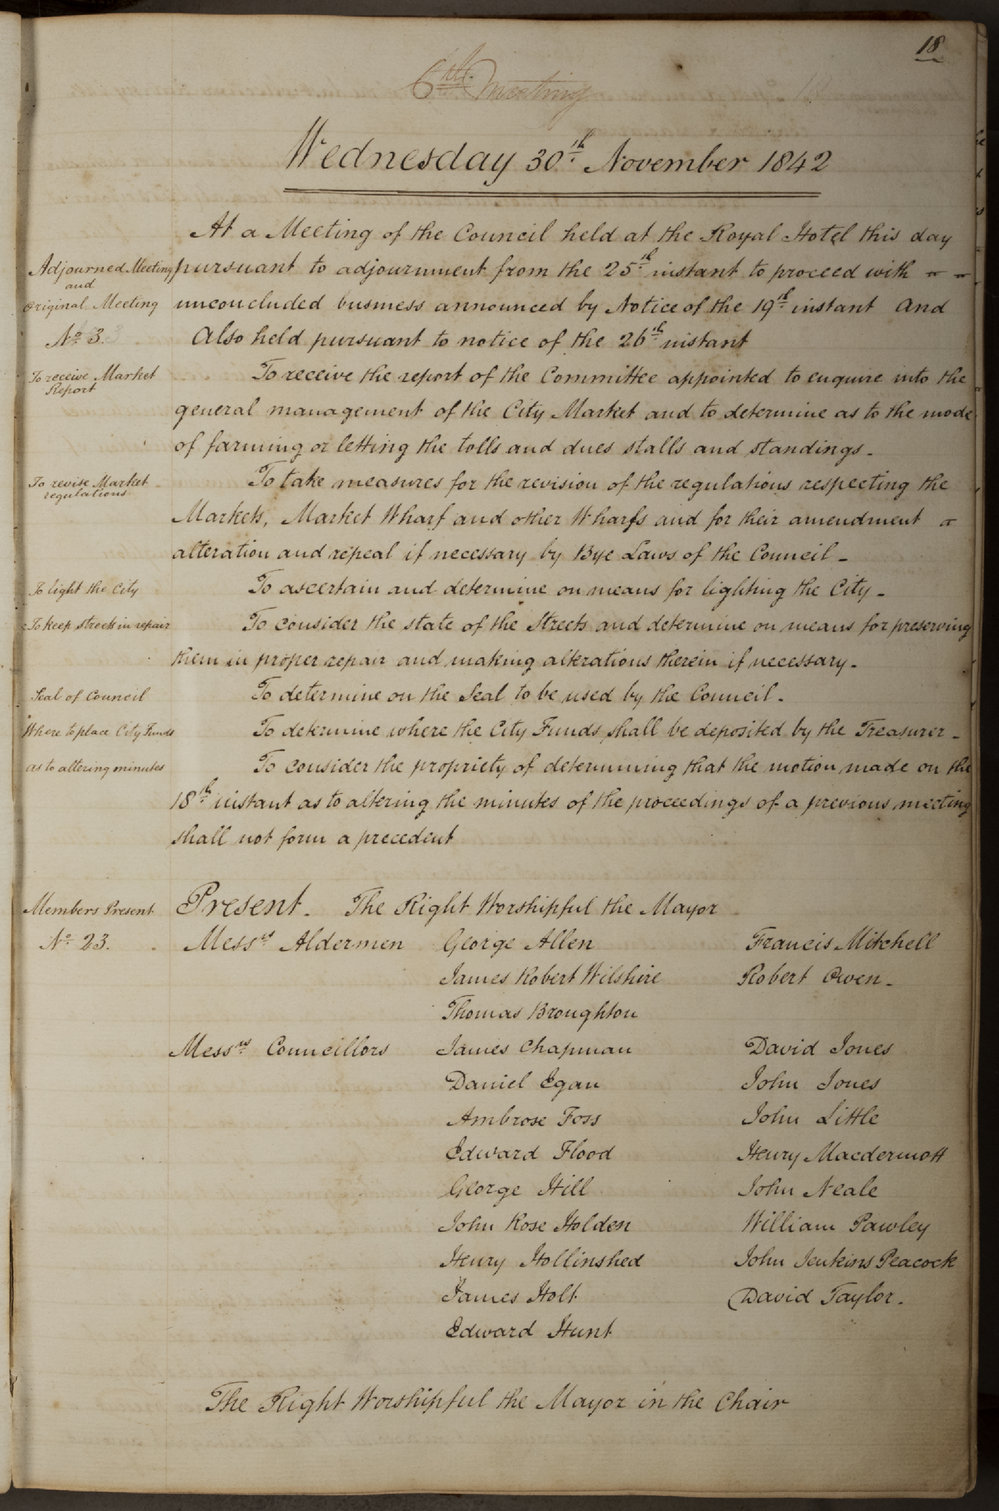 18
6th Meeting
Wednesday 30th November 1842
At a Meeting of the Council held at the Royal Hotel this day
Adjourned Meeting pursuant to adjournment from the 25th instant to proceed with
and
Original Meeting unconcluded business announced by Notice of the 19th instant and
No 3. Also held pursuant to notice of the 26th instant
To receive Market To receive the report of the Committee appointed to enquire into the
Report
general management of the City Market and to determine as to the mode
of farming or letting the tolls and dues stalls and standings.
To revise Market To take measures for the revision of the regulations respecting the
regulations
Markets, Market Wharf and other Wharfs and for their amendment
alteration and repeal if necessary by Bye Laws of the Council
To light the City To ascertain and determine on means for lighting the City
To keep streets in repair To consider the state of the Streets and determine on means for preserving
them in proper repair and making alterations therein if necessary
Seal of Council To determine on the Seal to be used by the Council
Where to place City Funds To determine where the City Funds shall be deposited by the Treasurer
as to altering minutes To consider the propriety of determining that the motion made on the
18th instant as to altering the minutes of the proceedings of a previous meeting
shall not form a precedent
Members Present Present. The Right Worshipful the Mayor
No 23. Messrs Aldermen George Allen Francis Mitchell
James Robert Wilshire Robert Owen
Thomas Broughton
Messrs Councillors James Chapman David Jones
Daniel Egan John Jones
Ambrose Foss John Little
Edward Flood Henry Macdermott
George Hill John Neale
John Rose Holden William Pawley
Henry Hollinshed John Jenkins Peacock
James Holt David Taylor.
Edward Hunt
The Right Worshipful the Mayor in the Chair